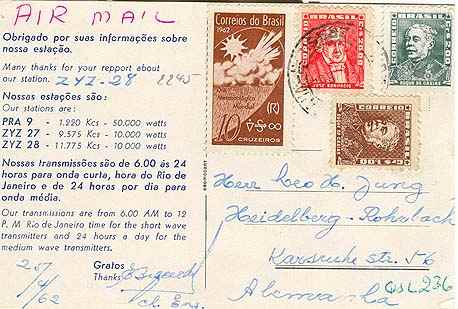 AIR MAIL
Obrigado por suas informações sobre
nossa estação.
Many thanks for your repport about
our station. ZYZ-28 2245
Nossas estações são:
Our stations are:
PRA 9 - 1.220 Kcs - 50.000 watts
ZYZ 27 - 9.575 Kcs - 10.000 watts
ZYZ 28 - 11.775 Kcs - 10.000 watts
Nossas transmissões são de 6.00 ás 24
horas para onda curta, hora do Rio de
Janeiro e de 24 horas por dia para
onda média.
Our transmissions are from 6.00 AM to 12
P. M Rio de Janeiro time for the short wave
transmitters and 24 hours a day for the
medium wave transmitters.
Gratos
Thanks
25/4/62
Ch. Eng.
Correios do Brasil
1962
10
CRUZEIROS
BRASIL
CORREIO
JOSÉ BONIFACIO
BRASIL
CORREIO
DUQUE DE CAXIAS
BRASIL
CORREIO
CR$ 1,00
Herr Leo H. Jung
Heidelberg - Rohrbach
Karlsruhe str. 56
Alemanha
QSL236